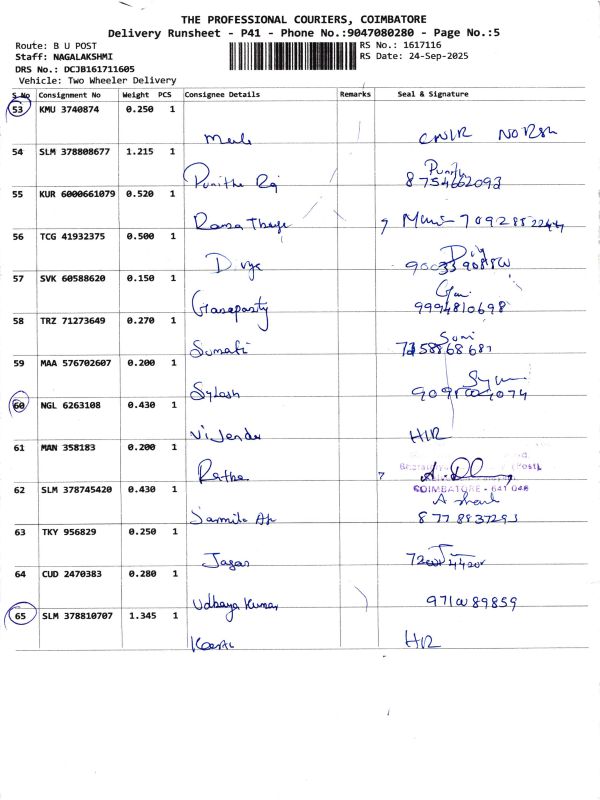 THE PROFESSIONAL COURIERS, COIMBATORE
Delivery Runsheet - P41 - Phone No.:9047080280 - Page No.:5
Route: B U POST
RS No.: 1617116
Staff: NAGALAKSHMI
RS Date: 24-Sep-2025
DRS No.: DCJB161711605
Vehicle: Two Wheeler Delivery
S.No Consignment No Weight PCS Consignee Details Remarks Seal & Signature
53 KMU 3740874 0.250 1
54 SLM 378808677 1.215 1
Punitha Raj 8754662092
55 KUR 6000661079 0.520 1
Rama 7092852244
56 TCG 41932375 0.500 1
Divya
57 SVK 60588620 0.150 1
Ganapathy 9994810698
58 TRZ 71273649 0.270 1
Sumati 7358868687
59 MAA 576702607 0.200 1
Sylash
60 NGL 6263108 0.430 1
Vijender H/R
61 MAN 358183 0.200 1
Ratha COIMBATORE - 641 046
62 SLM 378745420 0.430 1
8778837293
63 TKY 956829 0.250 1
Jagan
64 CUD 2470383 0.280 1
Udhaya Kumar 9710089859
65 SLM 378810707 1.345 1
H/R